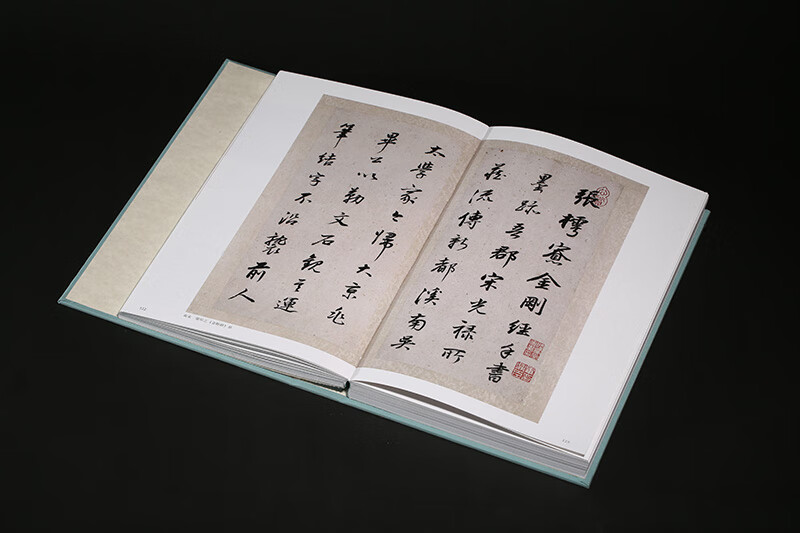 張樗寮金剛經手書
墨跡吾郡宋光祿所
藏流傳新都溪南吳
太學家今歸大京兆
畢公以勒文石觀其運
筆結字不沿襲前人